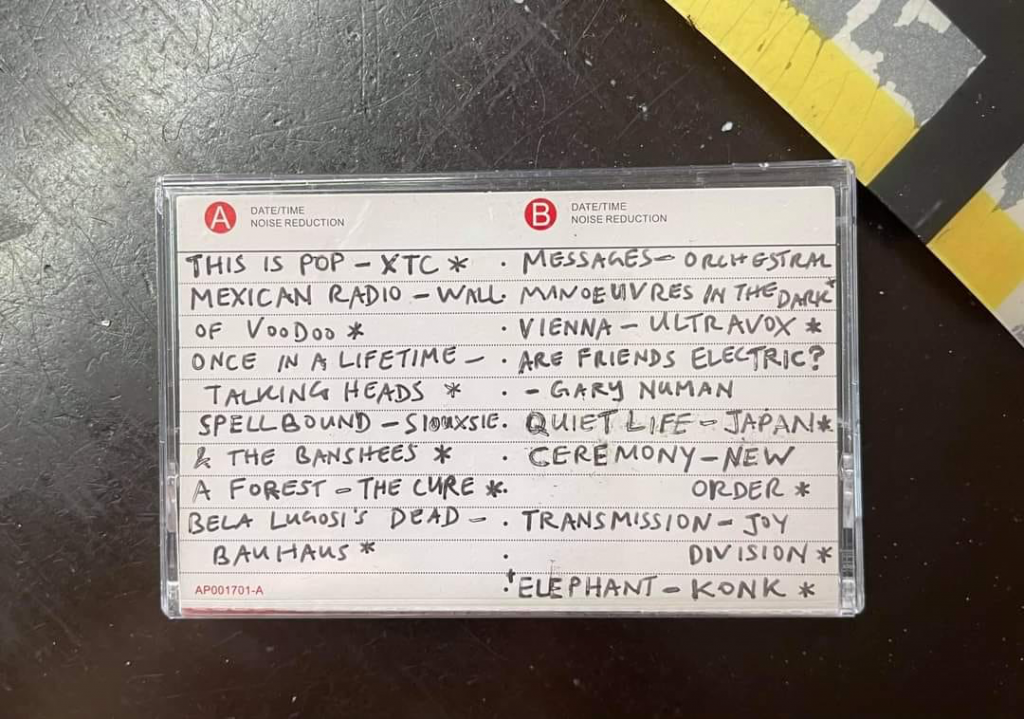 A DATE/TIME
NOISE REDUCTION
THIS IS POP - XTC *
MEXICAN RADIO - WALL
OF VOODOO *
ONCE IN A LIFETIME -
TALKING HEADS *
SPELLBOUND - SIOUXSIE
& THE BANSHEES *
A FOREST - THE CURE *
BELA LUGOSI'S DEAD -
BAUHAUS *
AP001701-A
B DATE/TIME
NOISE REDUCTION
· MESSAGES - ORCHESTRAL
· MANOEUVRES IN THE DARK *
· VIENNA - ULTRAVOX *
· ARE FRIENDS ELECTRIC?
· - GARY NUMAN
· QUIET LIFE - JAPAN *
· CEREMONY - NEW
· ORDER *
· TRANSMISSION - JOY
· DIVISION *
· + ELEPHANT - KONK *